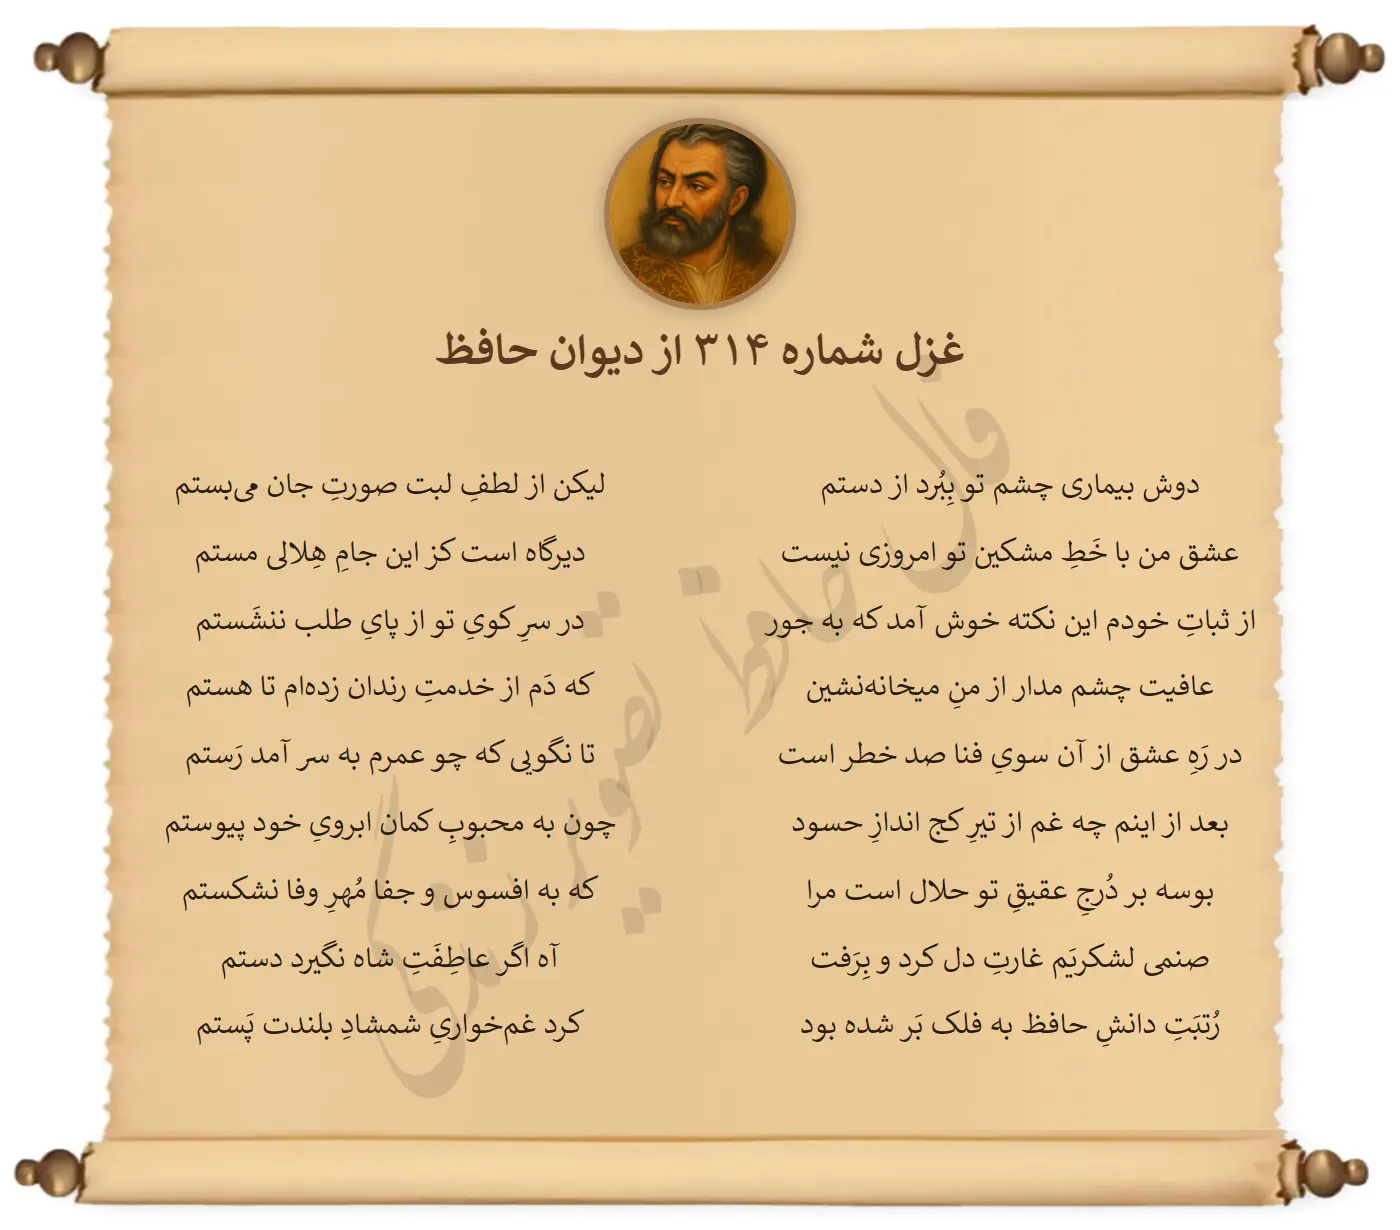 غزل شماره ۳۱۴ از دیوان حافظ
دوش بیماری چشم تو بِبُرد از دستم
لیکن از لطفِ لبت صورتِ جان می‌بستم
عشق من با خَطِ مشکین تو امروزی نیست
دیرگاه است کز این جامِ هِلالی مستم
از ثباتِ خودم این نکته خوش آمد که به جور
در سرِ کویِ تو از پایِ طلب ننشَستم
عافیت چشم مدار از منِ میخانه‌نشین
که دَم از خدمتِ رندان زده‌ام تا هستم
در رَهِ عشق از آن سویِ فنا صد خطر است
تا نگویی که چو عمرم به سر آمد رَستم
بعد از اینم چه غم از تیرِ کج اندازِ حسود
چون به محبوبِ کمان ابرویِ خود پیوستم
بوسه بر دُرجِ عقیقِ تو حلال است مرا
که به افسوس و جفا مُهرِ وفا نشکستم
صنمی لشکریَم غارتِ دل کرد و بِرَفت
آه اگر عاطِفَتِ شاه نگیرد دستم
رُتبَتِ دانشِ حافظ به فلک بَر شده بود
کرد غم‌خواریِ شمشادِ بلندت پَستم
فال حافظ تصویر زندگی